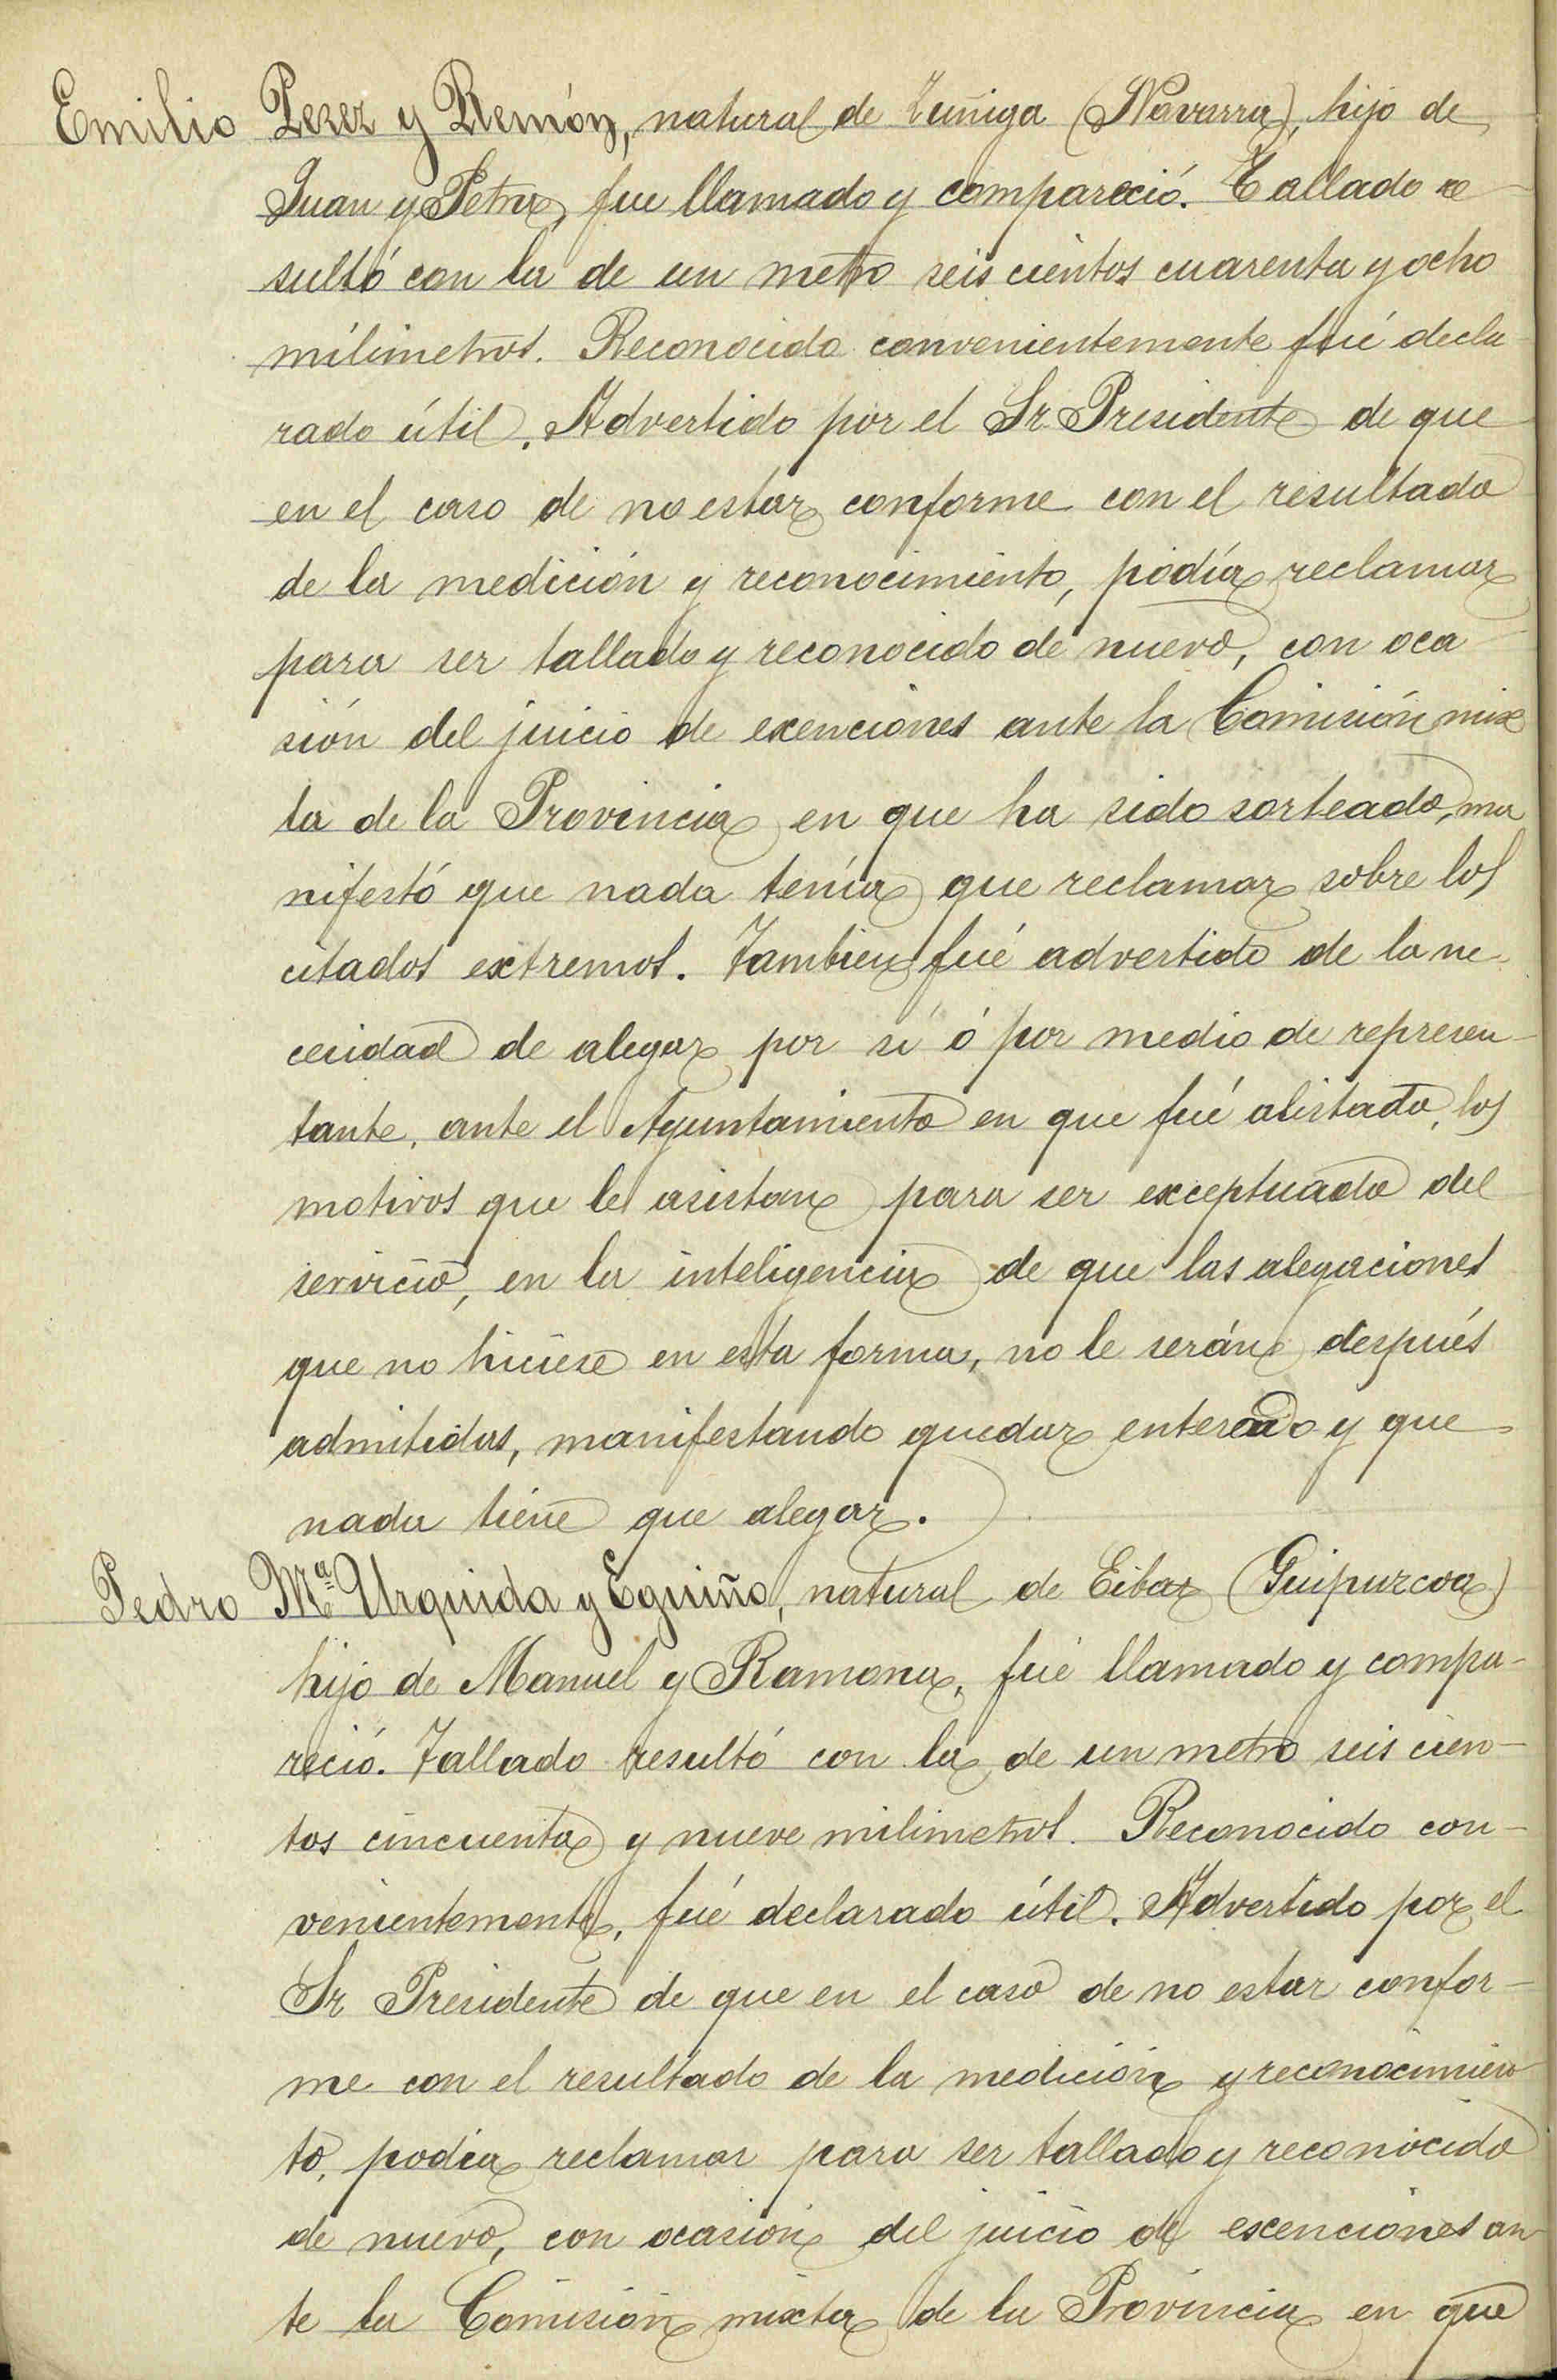 Emilio Perez y Remón, natural de Zuñiga (Navarra), hijo de
Juan y Petra, fue llamado y compareció. Tallado re
sultó con la de un metro seis cientos cuarenta y ocho
milimetros. Reconocido convenientemente fué decla
rado útil. Advertido por el Sr. Presidente de que
en el caso de no estar conforme con el resultado
de la medición y reconocimiento, podía reclamar
para ser tallado y reconocido de nuevo, con oca
sión del juicio de exenciones ante la Comisión mix
ta de la Provincia en que ha sido sorteado, ma
nifestó que nada tenía que reclamar sobre los
citados extremos. Tambien fué advertido de la ne-
cesidad de alegar por sí ó por medio de represen-
tante, ante el Ayuntamiento en que fué alistado, los
motivos que le asistan para ser exceptuado del
servicio, en la inteligencia de que las alegaciones
que no hiciese en esta forma, no le serán después
admitidas, manifestando quedar enterado y que
nada tiene que alegar.
Pedro Mª Urquida y Eguiño, natural de Eibar (Guipurcoa)
hijo de Manuel y Ramona, fué llamado y compa-
reció. Tallado resultó con la de un metro seis cien-
tos cincuenta y nueve milimetros. Reconocido con-
venientemente, fué declarado útil. Advertido por el
Sr Presidente de que en el caso de no estar confor-
me con el resultado de la medición y reconocimien
to, podia reclamar para ser tallado y reconocido
de nuevo, con ocasion del juicio de escenciones an
te la Comision mixta de la Provincia en que